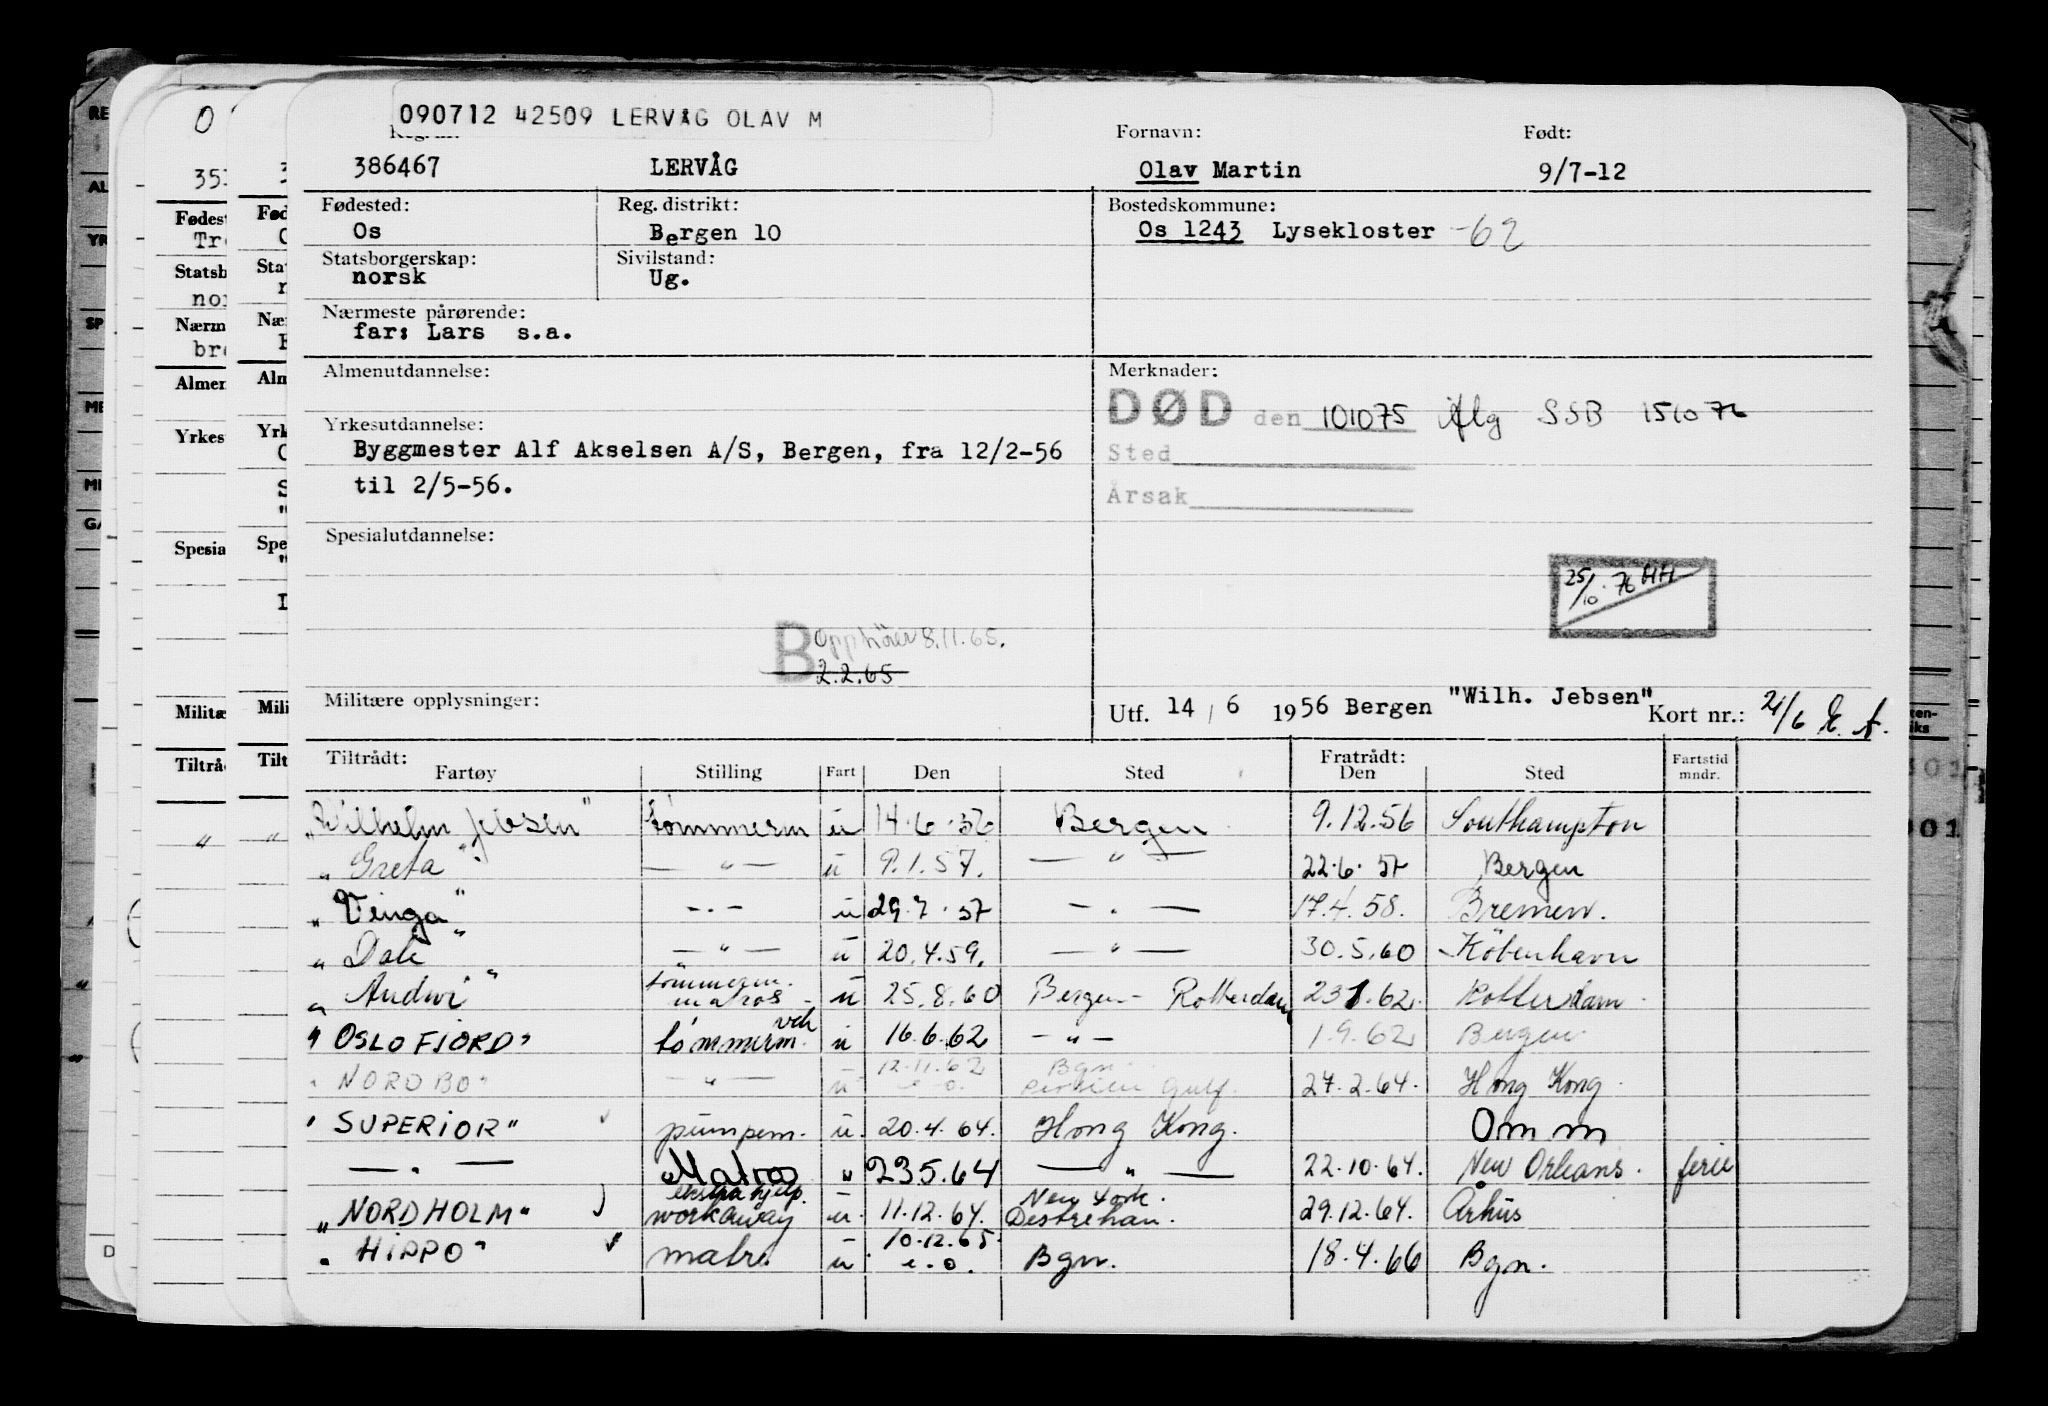 090712 42509 LERVÅG OLAV M
Fornavn: Født:
386467 LERVÅG Olav Martin 9/7-12
Fødested: Reg. distrikt: Bostedskommune:
Os Bergen 10 Os 1243 Lysekloster -62
Statsborgerskap: Sivilstand:
norsk Ug.
Nærmeste pårørende:
far: Lars s.a.
Almenutdannelse: Merknader:
DØD den 101075 SSB 151076
Yrkesutdannelse:
Byggmester Alf Akselsen A/S, Bergen, fra 12/2-56
Sted
til 2/5-56.
Årsak
Spesialutdannelse:
25/10.76 HH
B opphører 8.11.65.
2.2.65
Militære opplysninger:
Utf. 14/6 1956 Bergen "Wilh. Jebsen" Kort nr.: 21/6 E. A.
Tiltrådt: Fratrådt: Fartstid
Fartøy Stilling Fart Den Sted Den Sted mndr.
"Wilhelm Jebsen" tømmerm u 14.6.56 Bergen 9.12.56 Southampton
"Greta" — " — u 9.1.57. — " — 22.6.57 Bergen
"Vinga" — " — u 29.7.57 — " — 17.4.58. Bremen.
"Dale" — " — u 20.4.59. — " — 30.5.60 København
"Audwi" tømmerm. matros u 25.8.60 Bergen - Rotterdam 231.62. Rotterdam
"OSLOFJORD" tømmerm. u 16.6.62 — " — 1.9.62 Bergen
"NORDBO" — " — u 12.11.62 e.o. Bgn. Persian Gulf. 27.2.64. Hong Kong
"SUPERIOR" pumpem. u. 20.4.64. Hong Kong. Omm
— " — Matros " 23.5.64 — " — 22.10.64. New Orleans. ferie
"NORDHOLM" ekstra hjelp. workaway u. 11.12.64. New York. Destrehan. 29.12.64. Århus
"HIPPO" matr. u 10.12.65 e.o. Bgn. 18.4.66 Bgn.